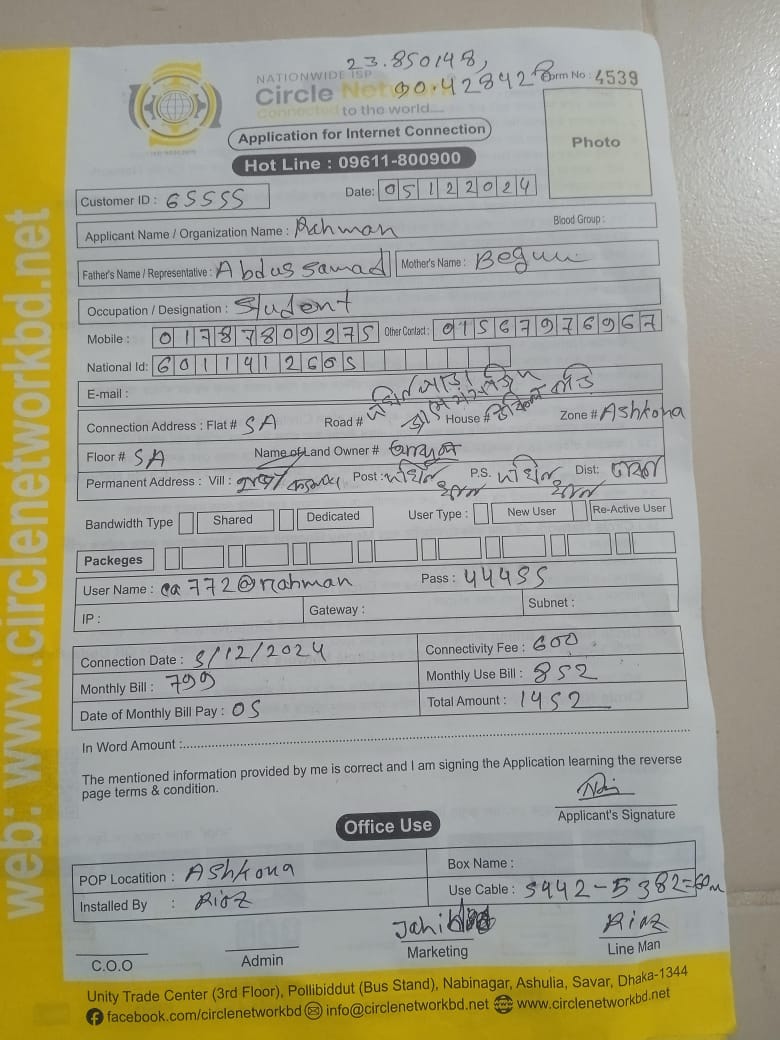 23.850148,
90.428428
NATIONWIDE ISP
Circle Network
Form No : 4539
Connected to the world....
Application for Internet Connection
Hot Line : 09611-800900
Photo
Customer ID : 65555
Date: 05122024
Applicant Name / Organization Name : Rahman
Blood Group :
Father's Name / Representative : Abdus samad Mother's Name : Begum
Occupation / Designation : Student
Mobile : 01787809275 Other Contact : 01567976967
National Id: 6011412605
E-mail :
Connection Address : Flat # 5A Road # House # Zone # Ashkona
Floor # 5A Name of Land Owner #
Permanent Address : Vill : Post : দক্ষিন খান P.S. দক্ষিন খান Dist: ঢাকা
Bandwidth Type Shared Dedicated User Type : New User Re-Active User
Packeges
User Name : ca772@rahman Pass : 44455
IP : Gateway : Subnet :
Connection Date : 5/12/2024 Connectivity Fee : 600
Monthly Bill : 799 Monthly Use Bill : 852
Date of Monthly Bill Pay : 05 Total Amount : 1452
In Word Amount :
The mentioned information provided by me is correct and I am signing the Application learning the reverse
page terms & condition.
Applicant's Signature
Office Use
POP Locatition : Ashkona Box Name :
Installed By : Riaz Use Cable : 5442-5382=60m
Riaz
C.O.O Admin Marketing Line Man
Unity Trade Center (3rd Floor), Pollibiddut (Bus Stand), Nabinagar, Ashulia, Savar, Dhaka-1344
facebook.com/circlenetworkbd info@circlenetworkbd.net www.circlenetworkbd.net
web: www.circlenetworkbd.net